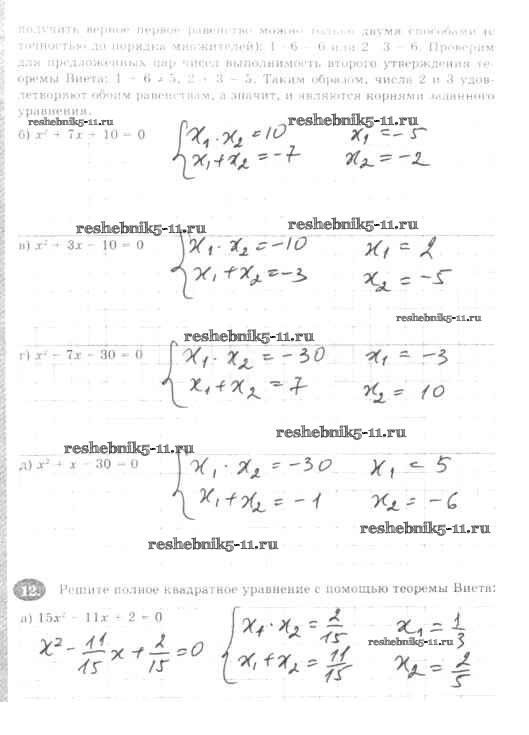 получить верное первое равенство можно только двумя способами (с
точностью до порядка множителей): 1 · 6 = 6 или 2 · 3 = 6. Проверим
для предложенных пар чисел выполнимость второго утверждения те-
оремы Виета: 1 + 6 ≠ 5, 2 + 3 = 5. Таким образом, числа 2 и 3 удов-
летворяют обоим равенствам, а значит, и являются корнями заданного
уравнения.
reshebnik5-11.ru
reshebnik5-11.ru
б) x² + 7x + 10 = 0 x₁ · x₂ = 10 x₁ = -5
x₁ + x₂ = -7 x₂ = -2
reshebnik5-11.ru
reshebnik5-11.ru
в) x² + 3x − 10 = 0 x₁ · x₂ = -10 x₁ = 2
x₁ + x₂ = -3 x₂ = -5
reshebnik5-11.ru
reshebnik5-11.ru
г) x² − 7x − 30 = 0 x₁ · x₂ = -30 x₁ = -3
x₁ + x₂ = 7 x₂ = 10
reshebnik5-11.ru
reshebnik5-11.ru
д) x² + x − 30 = 0 x₁ · x₂ = -30 x₁ = 5
x₁ + x₂ = -1 x₂ = -6
reshebnik5-11.ru
reshebnik5-11.ru
12. Решите полное квадратное уравнение с помощью теоремы Виета:
а) 15x² − 11x + 2 = 0 x₁ · x₂ = 2/15 x₁ = 1/3
reshebnik5-11.ru
x² - 11/15 x + 2/15 = 0 x₁ + x₂ = 11/15 x₂ = 2/5